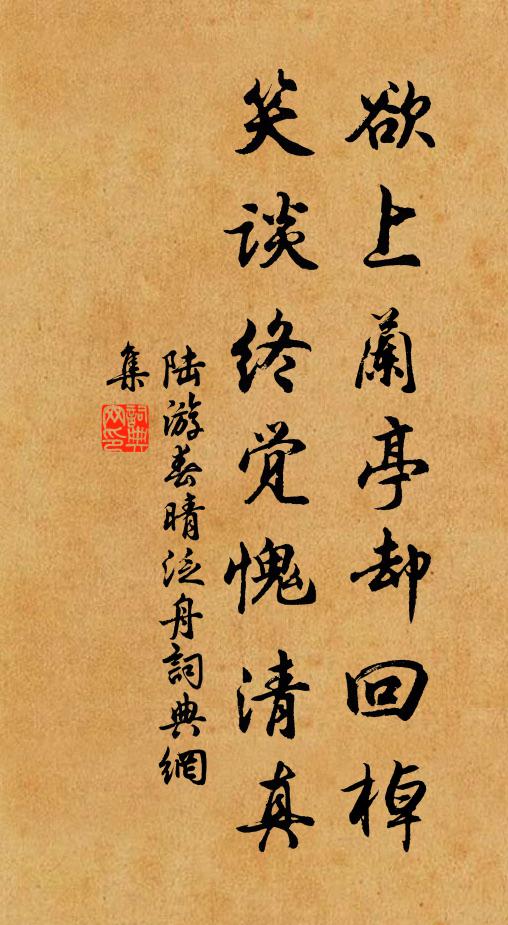 欲上蘭亭却回棹
笑谈终觉愧清真
陆游春晴泛舟詞典網
集
詞典網印